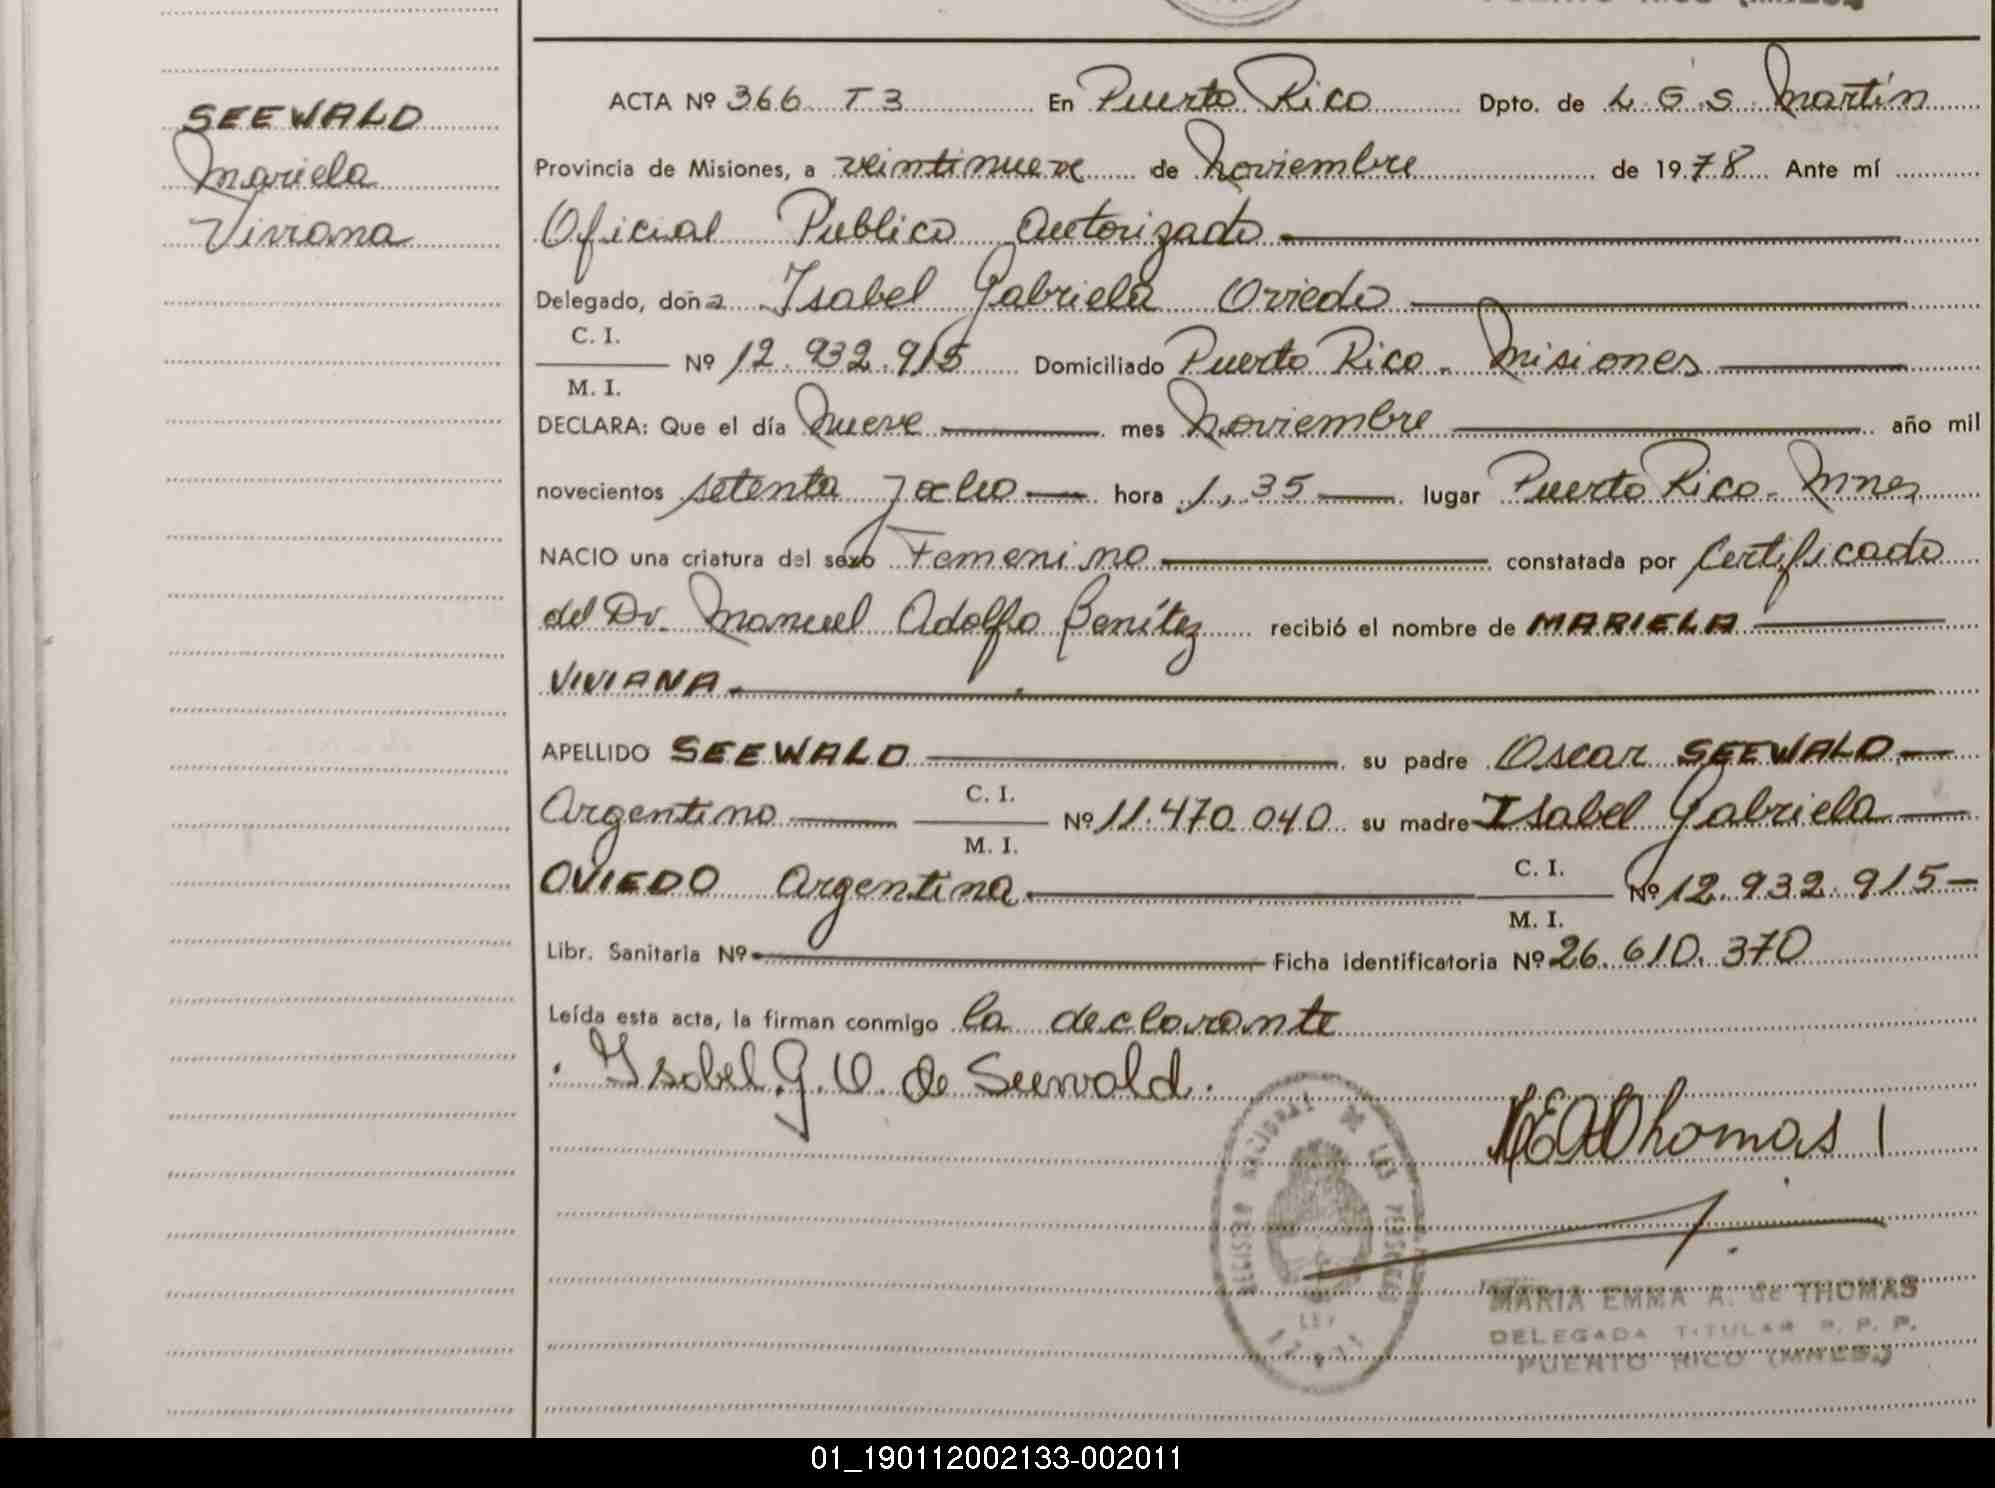 SEEWALD
Mariela
Viviana
ACTA Nº 366 T 3 En Puerto Rico Dpto. de L. G. S. Martín
Provincia de Misiones, a veintinueve de Noviembre de 1978 Ante mí
Oficial Público Autorizado
Delegado, doña Isabel Gabriela Oviedo
C. I.
M. I.
Nº 12.932.915 Domiciliado Puerto Rico - Misiones
DECLARA: Que el día Nueve mes Noviembre año mil
novecientos setenta y ocho hora 1,35 lugar Puerto Rico - Mnes
NACIO una criatura del sexo Femenino constatada por Certificado
del Dr. Manuel Adolfo Benítez recibió el nombre de MARIELA
VIVIANA
APELLIDO SEEWALD su padre Oscar SEEWALD
Argentino C. I. M. I. Nº 11.470.040 su madre Isabel Gabriela
OVIEDO Argentina C. I. M. I. Nº 12.932.915
Libr. Sanitaria Nº Ficha identificatoria Nº 26.610.370
Leída esta acta, la firman conmigo la declarante
Isabel G. O. de Seewald.
Thomas
REGISTRO NACIONAL DE LAS PERSONAS
LEY
MARIA EMMA A. de THOMAS
DELEGADA TITULAR R. P. P.
PUERTO RICO (MNES.)
01_190112002133-002011